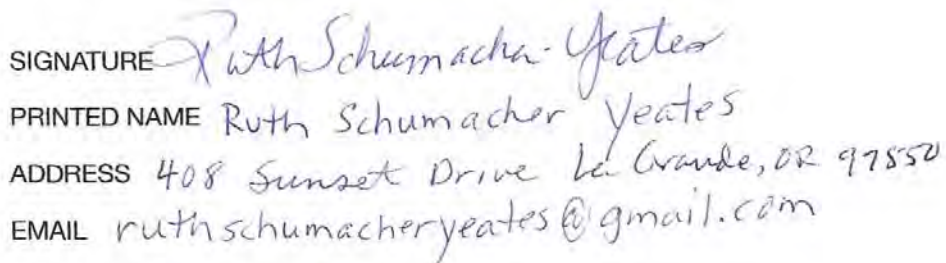 SIGNATURE Ruth Schumacher-Yeates
PRINTED NAME Ruth Schumacher Yeates
ADDRESS 408 Sunset Drive La Grande, OR 97850
EMAIL ruthschumacheryeates@gmail.com